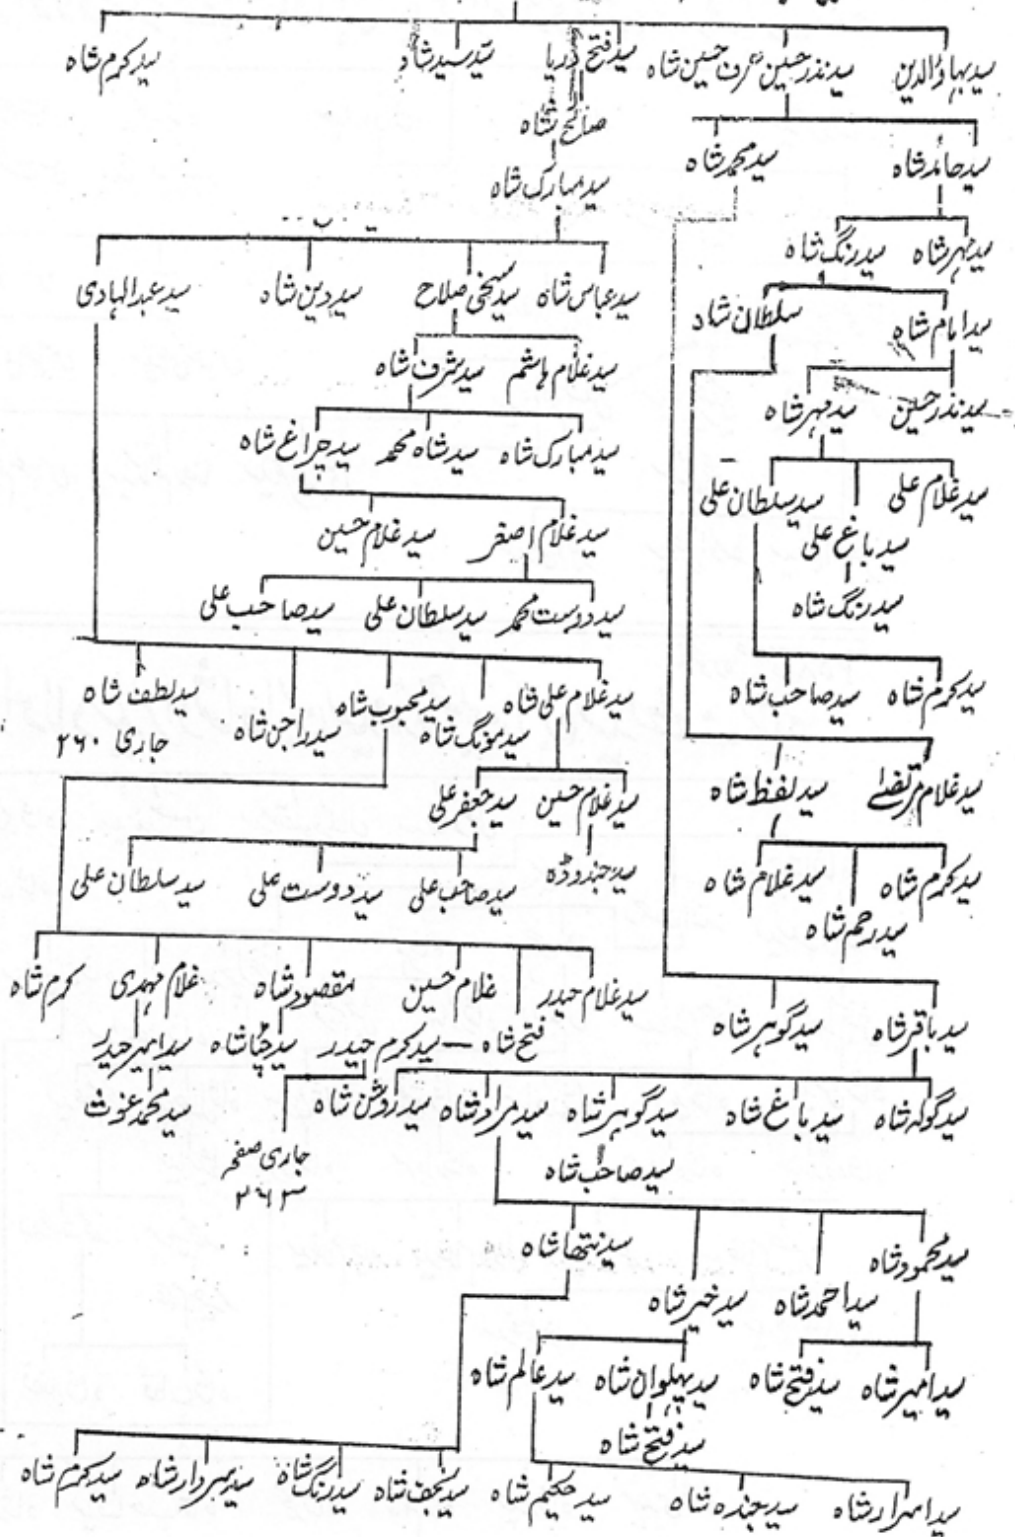 سید بہاؤالدین سید نذر حسین عرف حسین شاہ سید فتح دریا سید سید شاہ سید کرم شاہ
صالح شاہ
سید حامد شاہ سید محمد شاہ سید مبارک شاہ
سید مہر شاہ سید رنگ شاہ
سید عباس شاہ سید سخی صلاح سید دین شاہ سید عبدالہادی
سید امام شاہ سلطان شاہ
سید غلام ہاشم سید شرف شاہ
سید نذر حسین سید مہر شاہ
سید مبارک شاہ سید شاہ محمد سید چراغ شاہ
سید غلام علی سید باغ علی سید سلطان علی
سید غلام اصغر سید غلام حسین
سید رنگ شاہ
سید دوست محمد سید سلطان علی سید صاحب علی
سید کرم شاہ سید صاحب شاہ
سید غلام علی شاہ سید مونگ شاہ سید محبوب شاہ سید راجن شاہ سید لطف شاہ
جاری ۲۶۰
سید غلام مرتضےٰ سید لفظ شاہ
سید غلام حسین سید جعفر علی
سید کرم شاہ سید رحم شاہ سید غلام شاہ
سید جندوڈہ سید صاحب علی سید دوست علی سید سلطان علی
سید غلام حیدر غلام حسین مقصود شاہ غلام مہدی کرم شاہ
سید باقر شاہ سید گوہر شاہ
فتح شاہ — سید کرم حیدر سید چپا شاہ سید امیر حیدر
سید محمد غوث
سید گولہ شاہ سید باغ شاہ سید گوہر شاہ سید مراد شاہ سید روشن شاہ
جاری صفحہ
۲۶۳
سید صاحب شاہ
سید محمود شاہ سید احمد شاہ سید خیر شاہ سید نتھا شاہ
سید امیر شاہ سید فتح شاہ سید پہلوان شاہ سید عالم شاہ
سید فتح شاہ
سید جندہ شاہ سید حکیم شاہ سید نجف شاہ سید رنگ شاہ سید سردار شاہ سید کرم شاہ